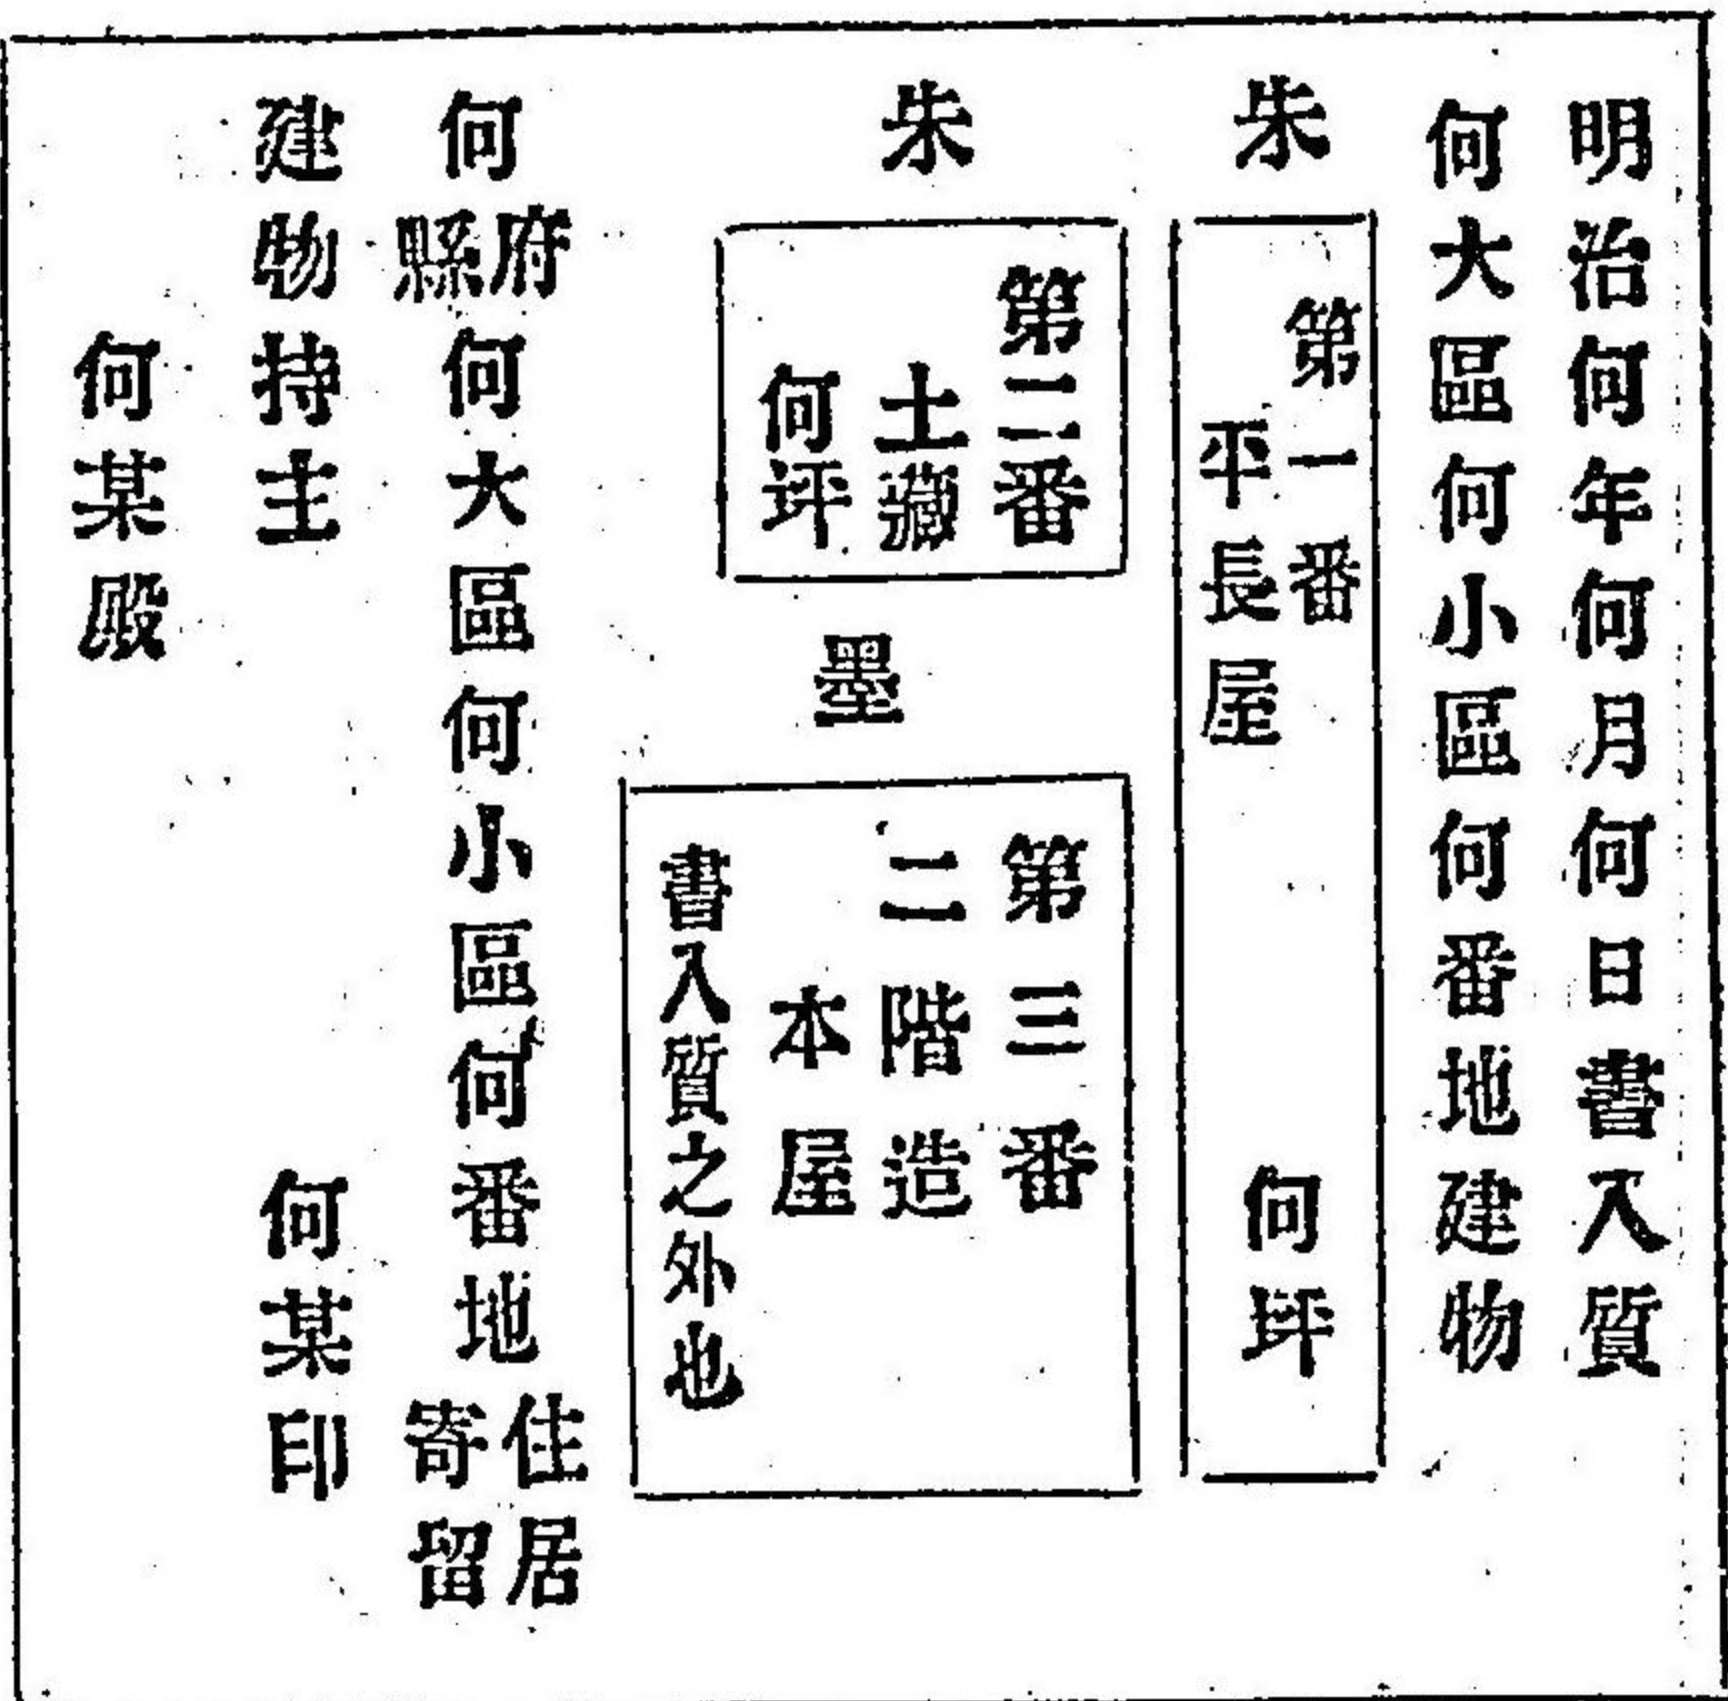 明治何年何月何日書入質
何大區何小區何番地建物
朱
第一番
平長屋
何坪
朱
第二番
土藏
何坪
墨
第三番
二階造
本屋
書入質之外也
何府縣何大區何小區何番地住居寄留
建物持主 何某印
何某殿